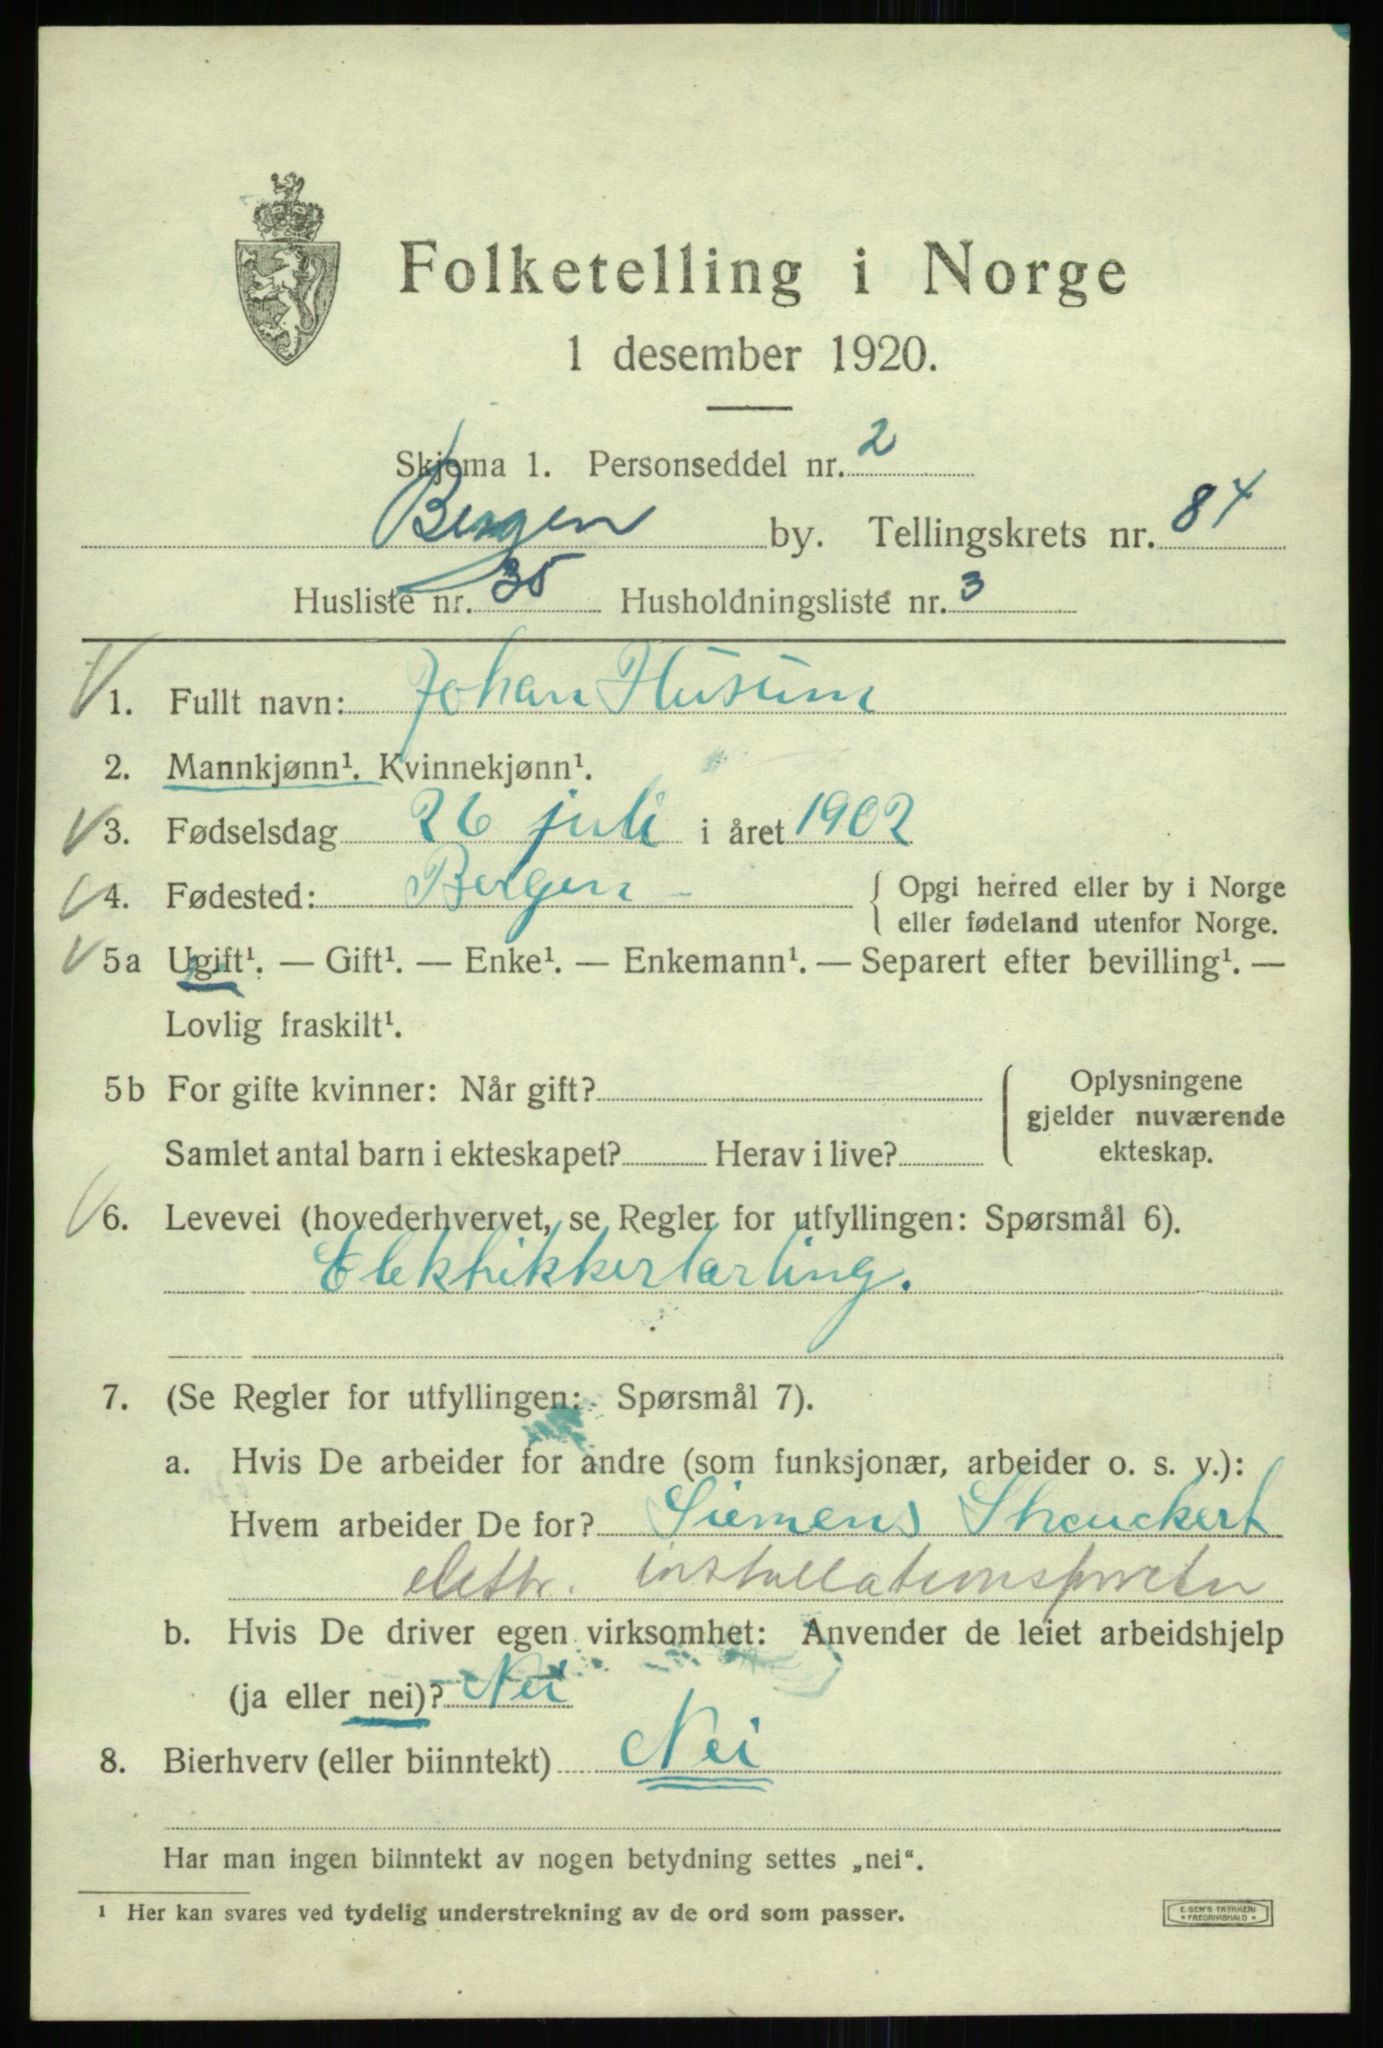 Folketelling i Norge
1 desember 1920.
Skjema 1. Personseddel nr. 2
Bergen by. Tellingskrets nr. 84
Husliste nr. 35 Husholdningsliste nr. 3
1. Fullt navn: Johan Husum
2. Mannkjønn¹. Kvinnekjønn¹.
3. Fødselsdag 26 juli i året 1902
4. Fødested: Bergen - { Opgi herred eller by i Norge
eller fødeland utenfor Norge.
5a Ugift¹. — Gift¹. — Enke¹. — Enkemann¹. — Separert efter bevilling¹. —
Lovlig fraskilt¹.
5b For gifte kvinner: Når gift? Oplysningene
gjelder nuværende
Samlet antal barn i ekteskapet? Herav i live? ekteskap.
6. Levevei (hovederhvervet, se Regler for utfyllingen: Spørsmål 6).
Elektrikkerlærling.
7. (Se Regler for utfyllingen: Spørsmål 7).
a. Hvis De arbeider for andre (som funksjonær, arbeider o. s. v.):
Hvem arbeider De for? Siemens Sheuckert
elektr. installations
b. Hvis De driver egen virksomhet: Anvender de leiet arbeidshjelp
(ja eller nei)? Nei
8. Bierhverv (eller biinntekt) Nei
Har man ingen biinntekt av nogen betydning settes „nei“.
¹ Her kan svares ved tydelig understrekning av de ord som passer.
E. SEM'S TRYKKERI
FREDRIKSHALD